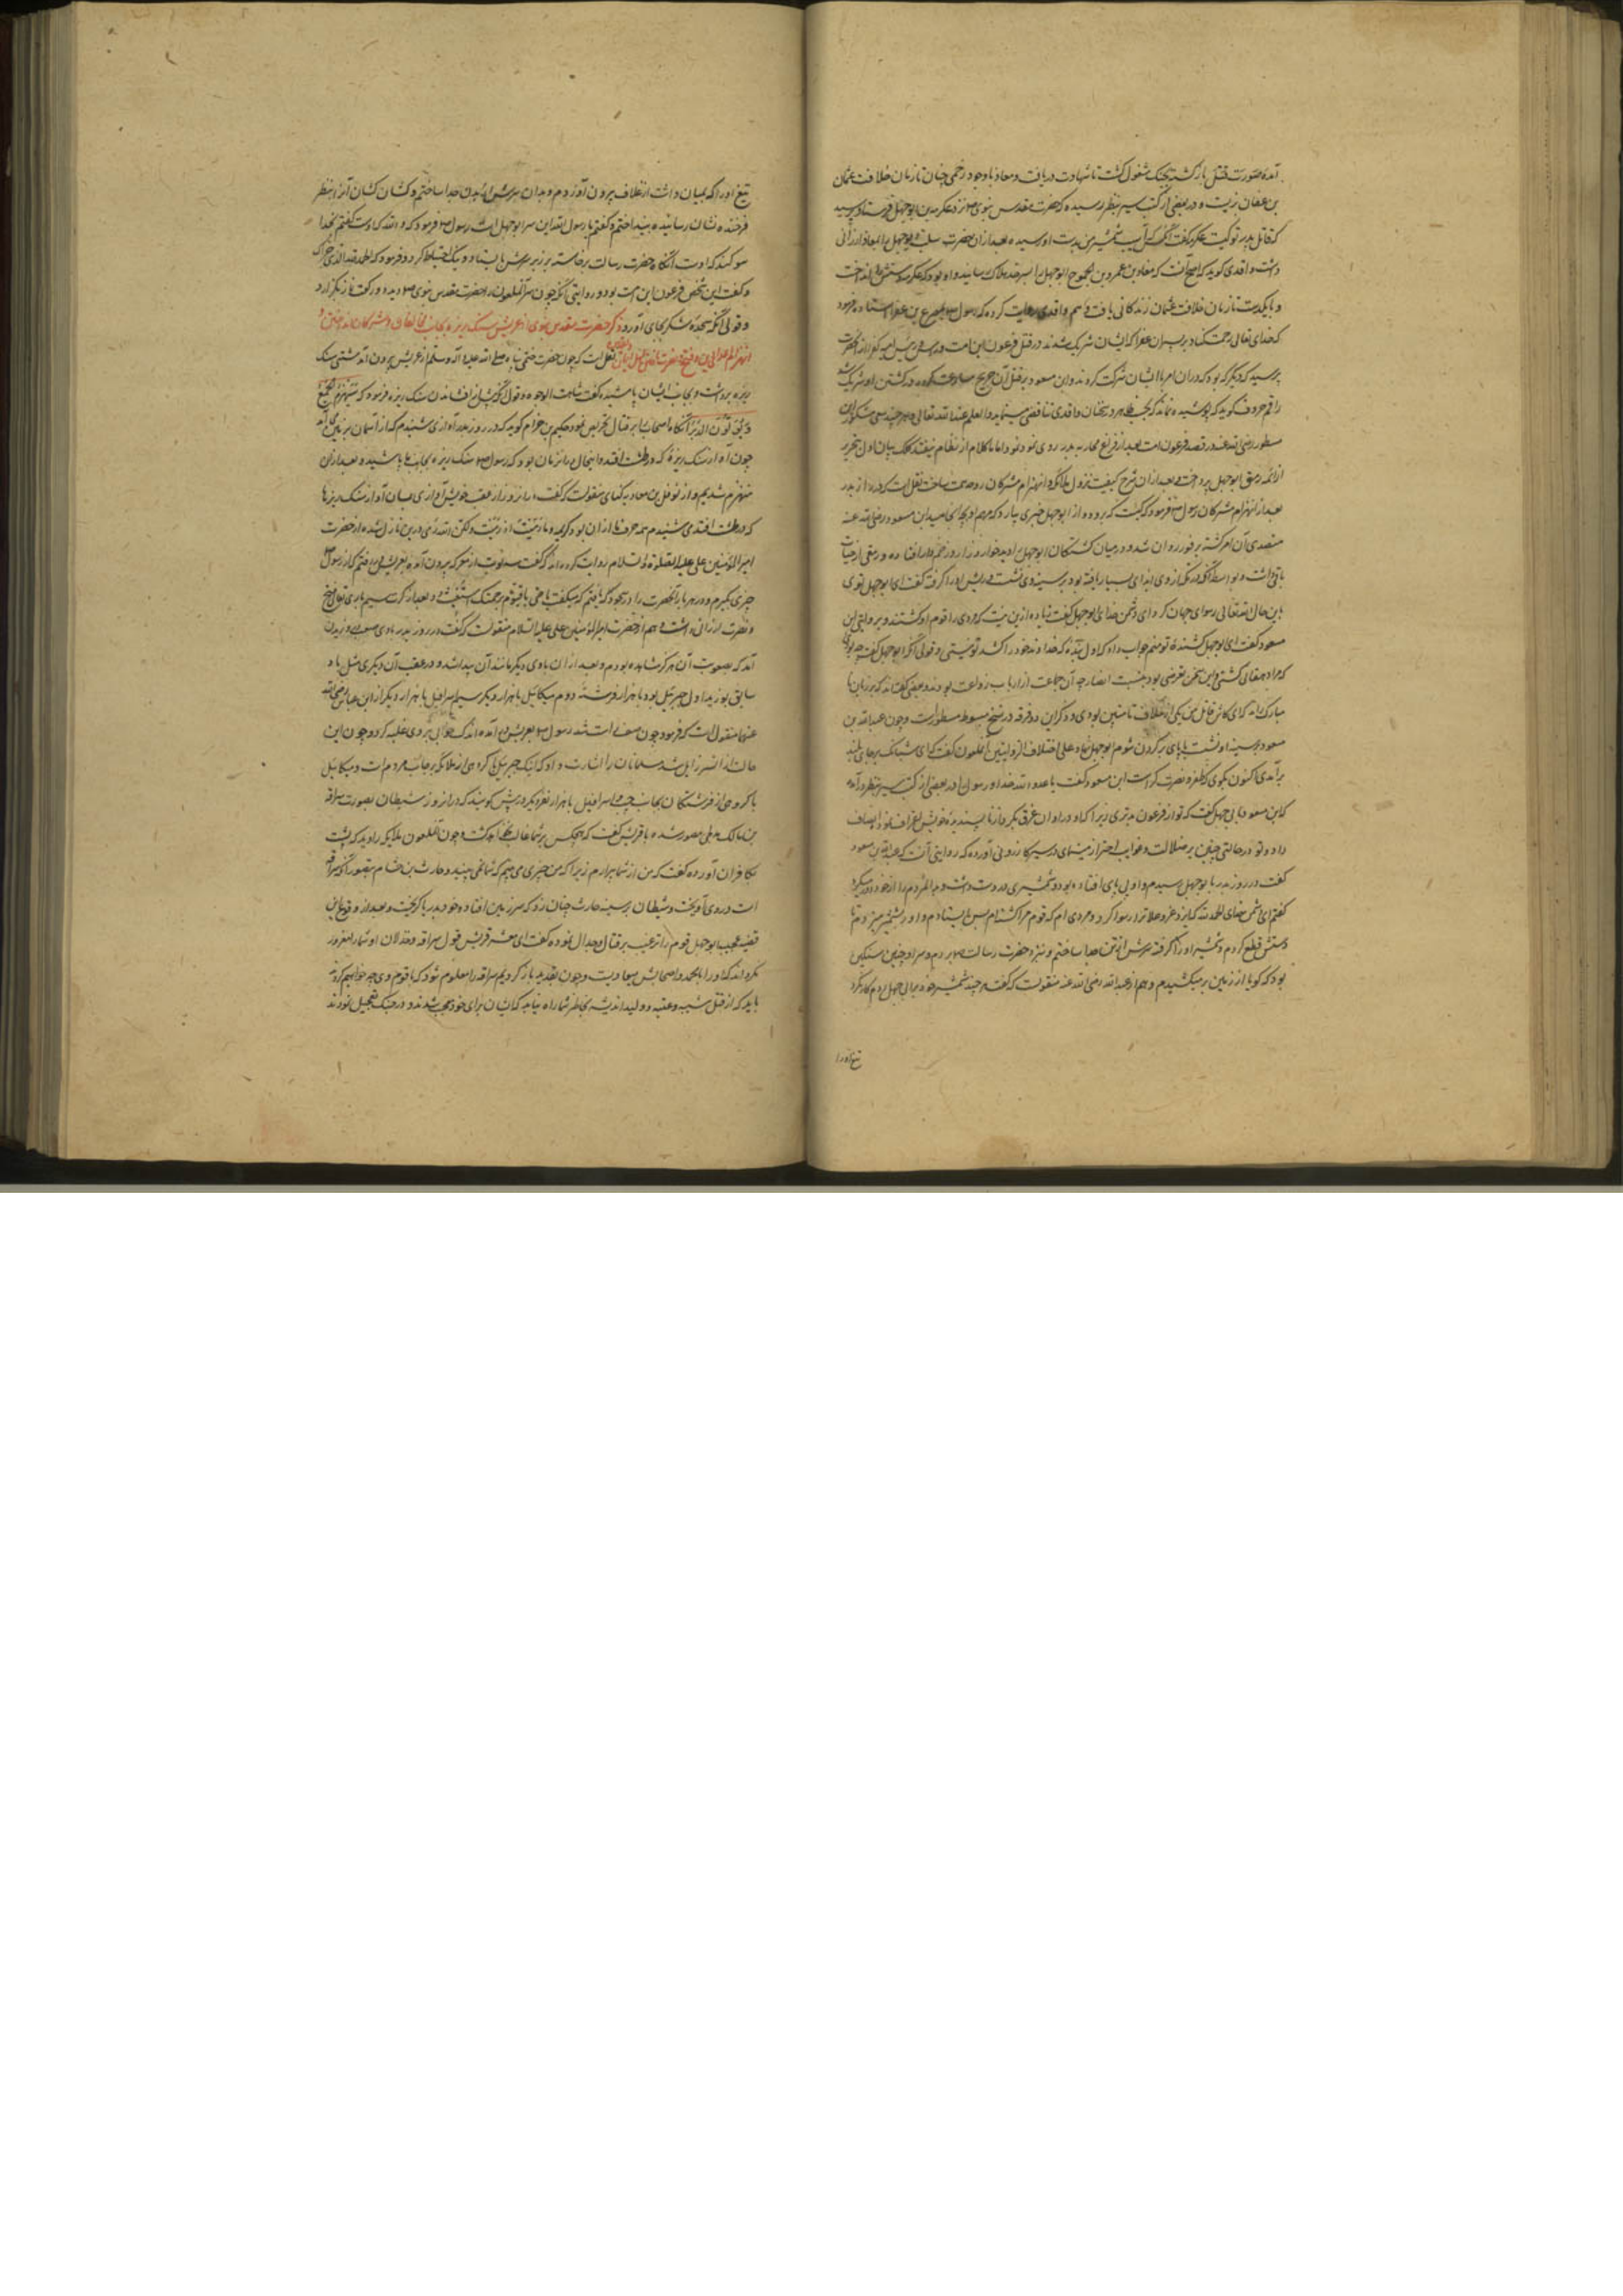 آمده صورت قتل باز گشته بجنگ مشغول گشت تا شهادت دریافت و معاذ با وجود زخمی چنان تا زمان خلافت عثمان
بن عفان زیست و در بعضی از کتب سیر بنظر رسیده که حضرت مقدس نبوی نزد عکرمه بن ابوجهل فرستاد و پرسید
که قاتل پدر تو کیست عکرمه گفت شمشیر من بدست او رسیده بعد از ان حضرت سلب ابوجهل را بمعاذ ارزانی
داشت و واقدی گوید که اصح آنست که معاذ بن عمرو بن الجموح ابوجهل را بسرحد هلاک رسانید و او بود که عکرمه دستش را انداخت
و با یکدست تا زمان خلافت عثمان زندگانی یافت و هم واقدی روایت کرده که رسول بمصرع بن عفرا استاده فرمود
که خدای تعالی رحمت کناد بر پسران عفرا که ایشان شریک شدند در قتل فرعون این امت
پرسید که دیگر که بود که در ان امر با ایشان شرکت کرد و ابن مسعود بر قتل آن جریح مسارعت نموده در کشتن او شریک شد
راقم حروف گوید که پوشیده نماند که بحسب ظاهر در سخنان واقدی تناقض مینماید و العلم عند الله تعالی و هر چند
مسطور در قصه فرعون امت بعد از فراغ محاربه بدر روی نمود اما تا کلام از نظام نیفتد کلک بیان اول بتحریر
ازاله رمق ابوجهل پرداخت و بعد از ان شرح کیفیت نزول ملائکه و انهزام مشرکان نقل است که در روز بدر
بعد از انهزام مشرکان رسول فرمود که کیست که برود و از ابوجهل خبری بیارد که مهم او بکجا رسید ابن مسعود رضی الله عنه
متصدی آن امر گشته بر فور روان شد و در میان کشتگان ابوجهل را دید خوار و زار و زخم دار افتاده و رمقی از حیات
باقی داشت و بواسطه آنکه در مکه از وی ایذای بسیار یافته بود بر سینه وی نشست و ریش او را گرفته گفت ای ابوجهل توی
باین حال الله تعالی رسوای جهان کرد ای دشمن خدای ابوجهل گفت زیاده ازین نیست که مردی را قوم او کشتند و بروایتی ابن
مسعود گفت ای ابوجهل کشنده تو منم جواب داد که اول بنده که خداوند خود را کشد تو نیستی و قولی آنکه ابوجهل گفت
که مراد دهقانی کشتی و این سخن تعرضی بود بنسبت انصار چه آن جماعت از ارباب زراعت بودند و بعضی گفته‌اند که بر زبان
مبارک و ذکر این دو فرقه در نسخ مبسوط مسطور است و چون عبد الله بن
مسعود بر سینه او نشست یا پای بر گردن شوم ابوجهل نهاد علی اختلاف الروایتین آن ملعون گفت که ای شبانک بر جای بلند
برآمدی اکنون بگوی که ظفر و نصرت کراست ابن مسعود گفت یا عدو الله خدا و رسول او را در بعضی از کتب سیر بنظر درآمده
که ابن مسعود با ابی جهل گفت که تو از فرعون بدتری زیرا که او در اوان غرق بکردار ناپسندیده خویش اعتراف نمود و انصاف
داد و تو در حالتی چنین بر ضلالت و غوایت اصرار مینمای در سیر کازرونی آورده که روایتی آنست که عبد الله بن مسعود
گفت در روز بدر با ابوجهل رسیدم و او بی پای افتاده بود و شمشیری در دست داشت و بدان مردم را از خود دور میکرد
گفتم ای دشمن خدای الحمد لله که ایزد عز و علا ترا رسوا کرد و مردی ام که قوم مرا کشته‌ام پس ایستادم و او را بشمشیر میزدم تا
دستش قطع کردم و شمشیر او را گرفته سرش از تن جدا ساختم و بنزد حضرت رسالت بردم و سر او چنین سنگین
بود که گویا از زمین بر میکشیدم و هم از عبد الله رضی الله عنه منقولست که گفت هر چند شمشیر خود بر ابی جهل زدم کار نکرد
تیغ او را
تیغ او را که بمیان داشت از غلاف بیرون آوردم و بدان سرش از بدن جدا ساختم و کشان کشان آنرا بنظر
فرخنده نشان رسانیده بینداختم و گفتم یا رسول الله این سر ابوجهل است رسول فرمود که والله که اوست گفتم بخدا
سوگند که اوست آنگاه حضرت رسالت برخاسته بر زبر سرش بایستاد و نیک احتیاط کرد و فرمود که الحمد لله الذی اخزاک
و گفت این شخص فرعون این امت بود و روایتی آنکه چون سر آن ملعون را حضرت مقدس نبوی دید دو رکعت نماز بگزارد
و قولی آنکه سجده شکر بجای آورد ذکر حضرت مقدس نبوی از عریش سنگ ریزه بجانب مخالفان و مشرکان انداختن و
نقل است که چون حضرت ختمی پناه صلی الله علیه و آله و سلم از عریش بیرون آمد مشتی سنگ
ریزه برداشت و بجانب ایشان پاشیده گفت شاهت الوجوه و قولی آنکه پیش از افشاندن سنگ ریزه فرمود که سیهزم الجمع
و یولون الدبر آنگاه اصحاب را بر قتال تحریص نمود حکیم بن حزام گوید که در روز بدر آوازی شنیدم که از آسمان بر زمین آمد
چون آواز سنگ ریزه که در طشت افتد و این حال در آن زمان بود که رسول سنگ ریزه بجانب ما پاشید و بعد از آن
منهزم شدیم و از نوفل بن معاویه کنانی منقولست که گفت در آن روز از عقب خویش آوازی بسان آواز سنگ ریزها
که در طشت افتد می شنیدم همه خوف ما از ان بود کریمه و ما رمیت اذ رمیت ولکن الله رمی در ین نازل شده از حضرت
امیر المؤمنین علی علیه الصلوة و السلام روایت کرده‌اند که گفت سه نوبت از معرکه بیرون آمده بعریش میرفتم که از رسول
خبری بگیرم و در هر بار آنحضرت را در سجود یافتم که میگفت یا حی یا قیوم برحمتک استغیث و بعد از کرت سیم باری تعالی فتح
و نصرت ارزانی داشت و هم از حضرت امیر المؤمنین علی علیه السلام منقولست که گفت در روز بدر بادی صعب وزیدن
آمد که بصعوبت آن هرگز مشاهده نبودم و بعد از ان بادی دیگر مانند آن پیدا شد و در عقب آن دیگری مثل باد
سابق بوزید اول جبرئیل بود با هزار فرشته دوم میکائیل با هزار دیگر سیم اسرافیل با هزار دیگر از ابن عباس رضی الله
عنهما منقول است که فرمود چون صف راست شد رسول بعریش در آمده اندک خوابی بروی غلبه کرد و چون این
حالت از آن سرور زایل شد مسلمانان را بشارت داد که اینک جبرئیل با گروهی از ملائکه بر جانب مردم است و میکائیل
با گروهی از فرشتگان بجانب چپ و اسرافیل با هزار نفر دیگر در پس گویند که در آنروز شیطان بصورت سراقه
بن مالک مدلجی مصور شده با قریش گفت که هیچکس بر شما غالب نخواهد گشت و چون آن ملعون ملایکه را دید که پشت
بکافران آورده گفت که من از شما بیزارم زیرا که من چیزی می بینم که شما نمی بینید و حارث بن هشام بتصور آنکه سراقه
است در وی آویخت و شیطان بر سینه حارث چنان زد که بر زمین افتاد و خود بدریا گریخت و بعد از وقوع این
قضیه عجیب ابوجهل قوم را ترغیب بر قتال و جدال نموده گفت ای معشر قریش قول سراقه و خذلان او شما را مغرور
نگرداند که او را با محمد و اصحابش میعادیست و چون بقدید باز گردیم سراقه را معلوم شود که با قوم وی چه خواهیم کرد
باید که از قتل شیبه و عتبه و ولید اندیشه بخاطر شما راه نیابد که ایشان برای خود معجب شدند و در جنگ تعجیل نمودند